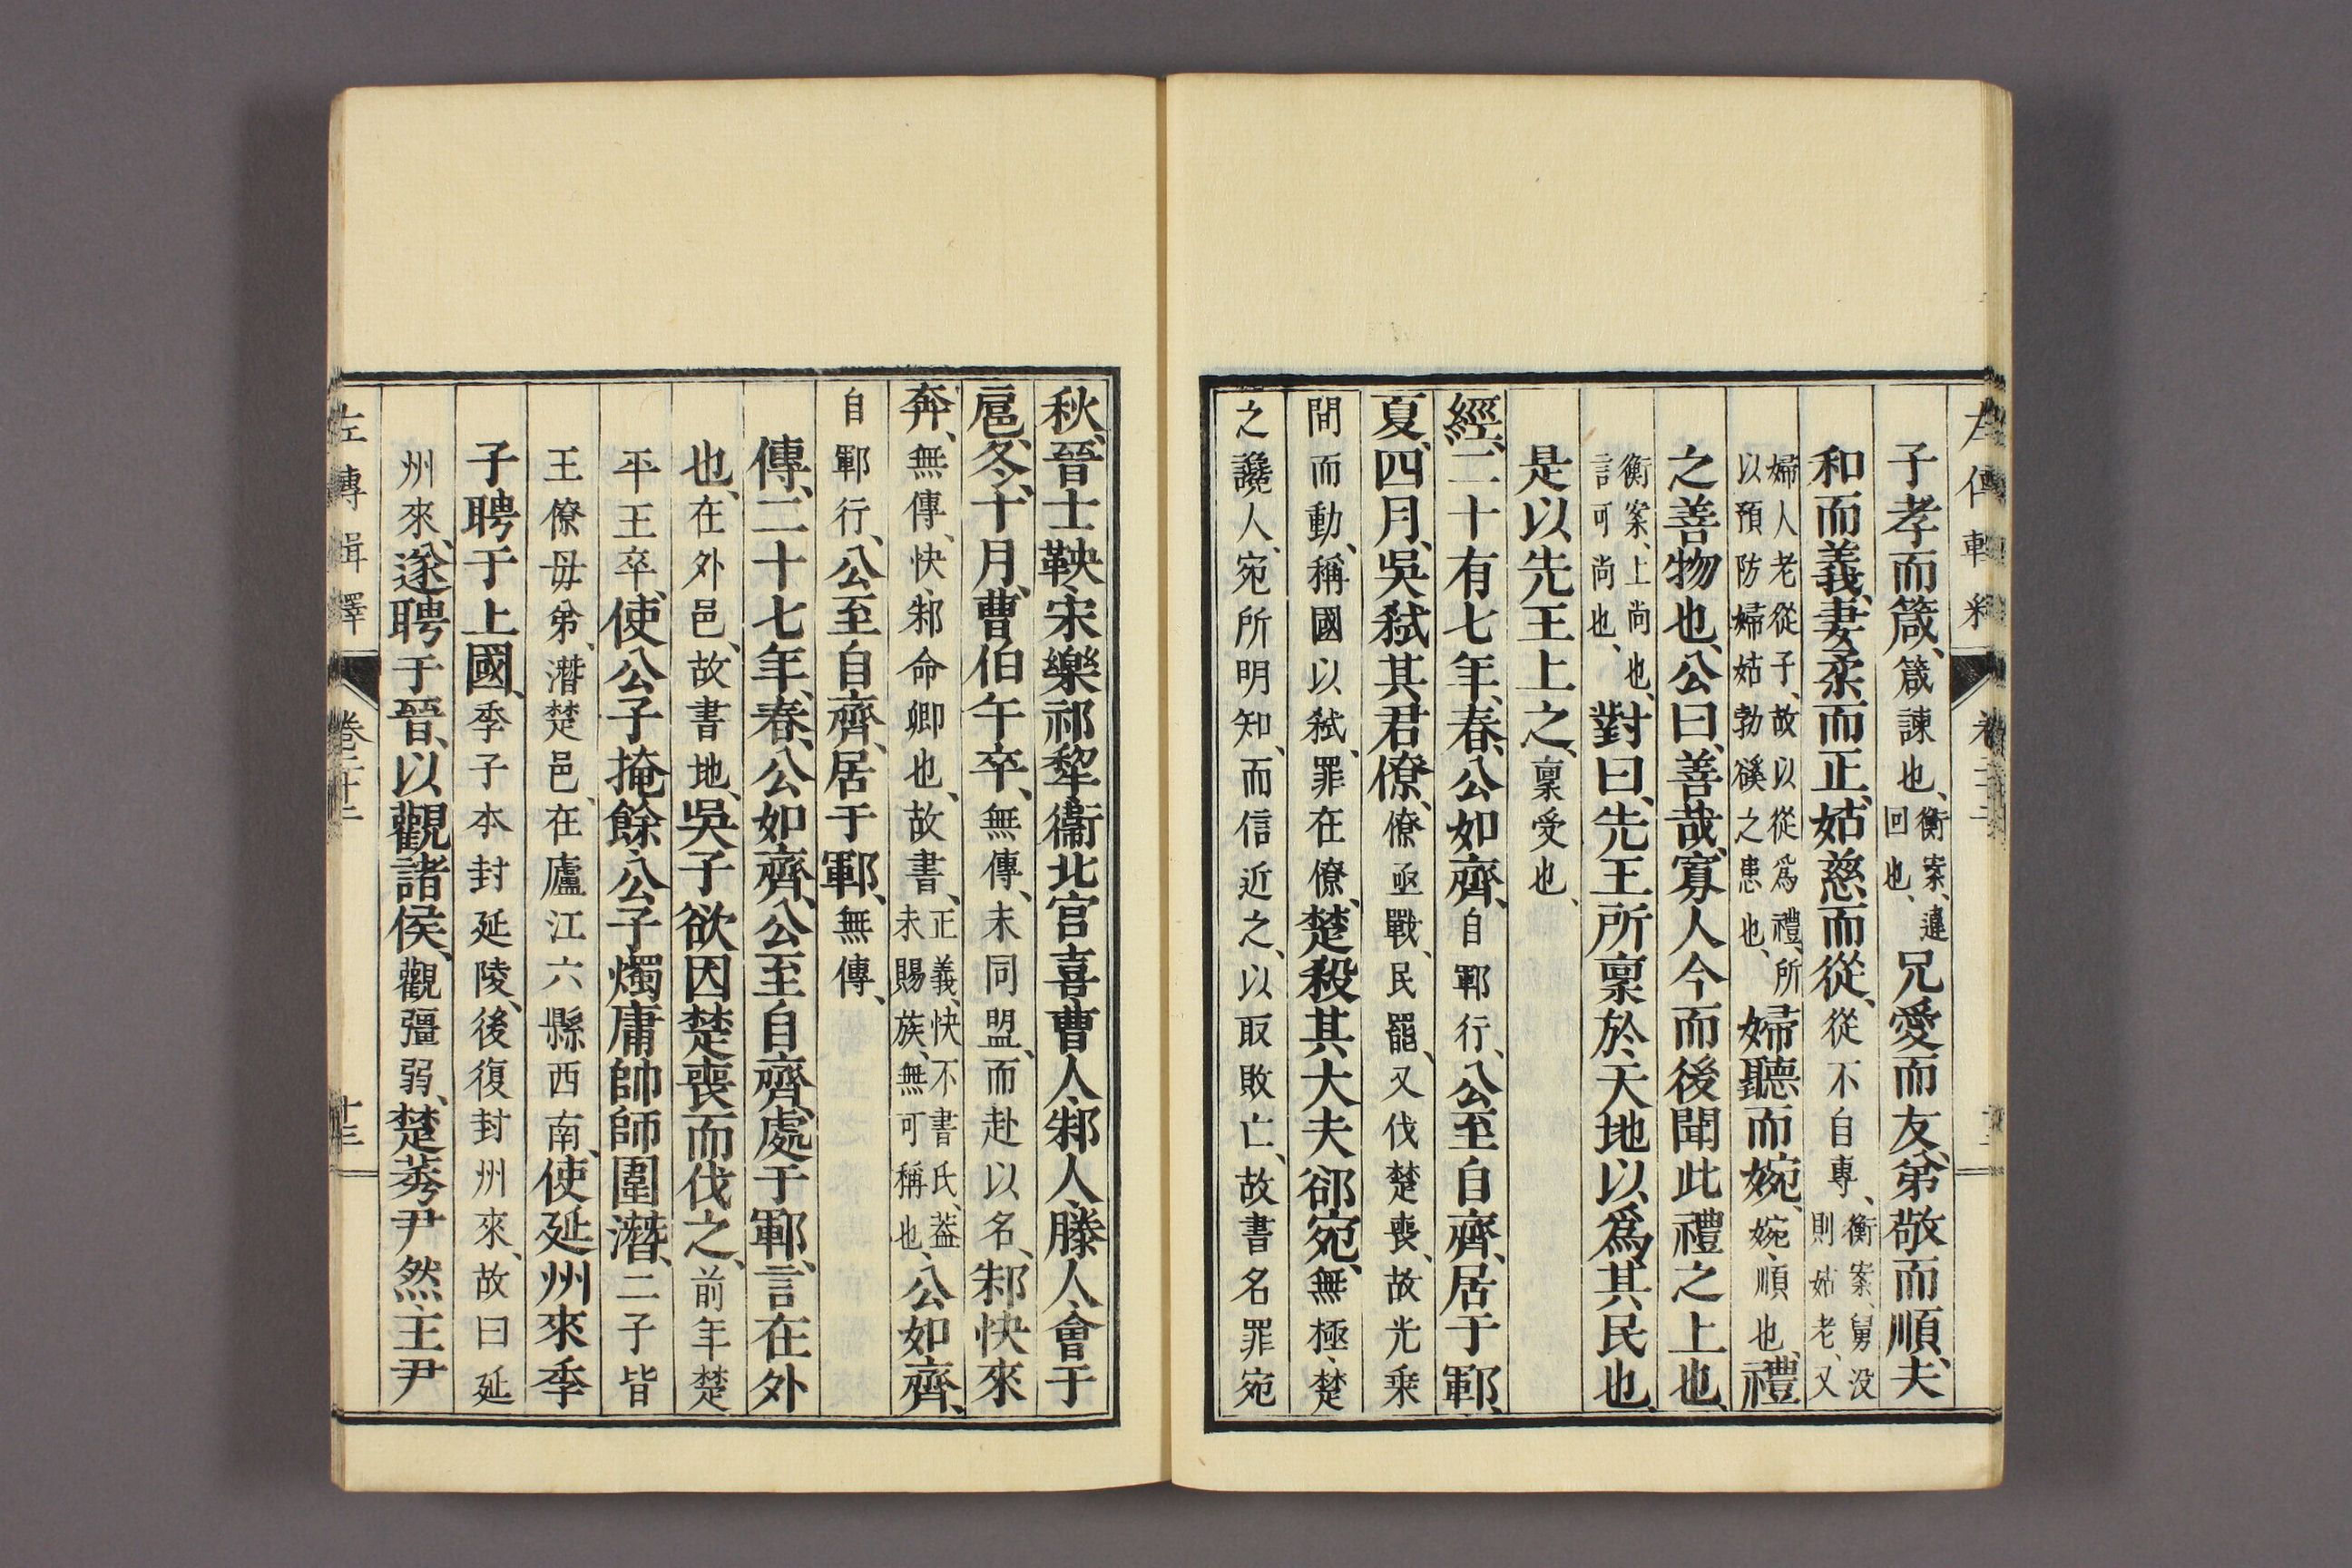 子孝而箴、箴諫也、衡案、違回也、兄愛而友、弟敬而順、夫
和而義、妻柔而正、姑慈而從、從不自專、衡案、舅没則姑老、又
婦人老從子、故以從爲禮、所以預防婦姑勃豀之患也、婦聽而婉、婉、順也、禮
之善物也、公曰、善哉、寡人今而後聞此禮之上也、
衡案、上尚也、言可尚也、對曰、先王所稟於天地以爲其民也、
是以先王上之、稟受也、
經、二十有七年、春、公如齊、自鄆行、公至自齊、居于鄆、
夏、四月、吳弒其君僚、僚亟戰、民罷、又伐楚喪、故光乘
間而動、稱國以弒、罪在僚、楚殺其大夫郤宛、無極、楚
之讒人、宛所明知、而信近之、以取敗亡、故書名罪宛
秋、晉士鞅、宋樂祁犂、衞北宮喜、曹人、邾人、滕人、會于
扈、冬、十月、曹伯午卒、無傳、未同盟、而赴以名、邾快來
奔、無傳、快、邾命卿也、故書、正義、快不書氏、葢未賜族、無可稱也、公如齊、
自鄆行、公至自齊、居于鄆、無傳、
傳、二十七年、春、公如齊、公至自齊、處于鄆、言在外
也、在外邑、故書地、吳子欲因楚喪而伐之、前年楚
平王卒、使公子掩餘、公子燭庸帥師圍潛、二子皆
王僚母弟、潛楚邑、在廬江六縣西南、使延州來季
子聘于上國、季子本封延陵、後復封州來、故曰延
州來、遂聘于晉、以觀諸侯、觀彊弱、楚莠尹然、主尹
左傳輯釋 卷二十二 十三